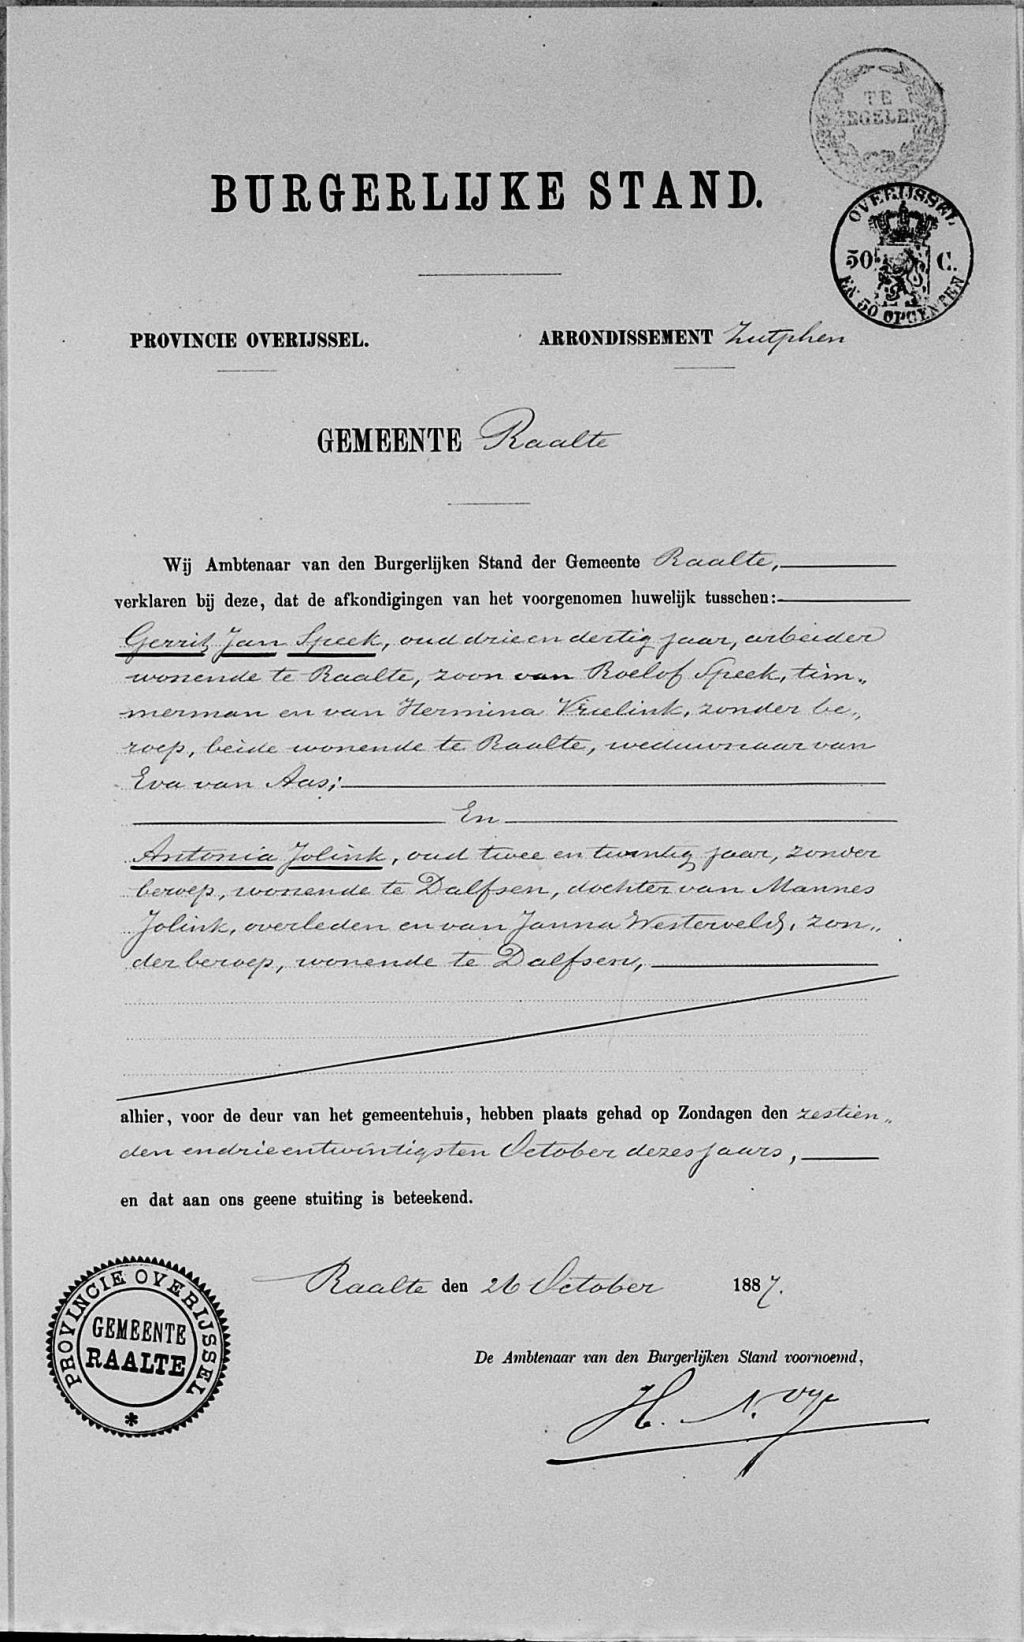 TE
ZEGELEN
BURGERLIJKE STAND.
OVERIJSSEL
50 C.
EN 50 OPCENTEN
PROVINCIE OVERIJSSEL. ARRONDISSEMENT Zutphen
GEMEENTE Raalte
Wij Ambtenaar van den Burgerlijken Stand der Gemeente Raalte,
verklaren bij deze, dat de afkondigingen van het voorgenomen huwelijk tusschen:
Gerrit Jan Speek, oud drie en dertig jaar, arbeider
wonende te Raalte, zoon van Roelof Speek, tim„
merman en van Hermina Vrielink, zonder be„
roep, beide wonende te Raalte, weduwnaar van
Eva van Aas;
En
Antonia Jolink, oud twee en twintig jaar, zonder
beroep, wonende te Dalfsen, dochter van Mannes
Jolink, overleden en van Janna Westerveld, zon„
der beroep, wonende te Dalfsen,
alhier, voor de deur van het gemeentehuis, hebben plaats gehad op Zondagen den zestien„
den en drie en twintigsten October dezes jaars,
en dat aan ons geene stuiting is beteekend.
Raalte den 26 October 1887.
De Ambtenaar van den Burgerlijken Stand voornoemd,
PROVINCIE OVERIJSSEL
GEMEENTE
RAALTE
H.